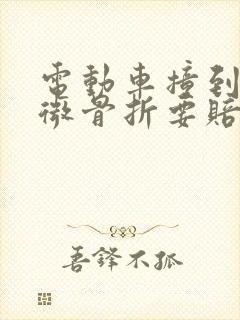 電動車撞到
微骨折要賠
善鋒不孤